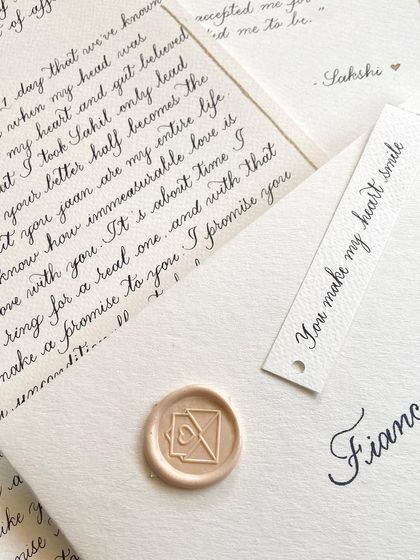 of af
day that we've known
when my head was
my heart and gut believed
I took Sahil only lead
your better half becomes the
you jaan are my entire life
know how immeasurable love is
with you. It's about time I
ring for a real one..and with that
make a promise to you. I promise you
accepted me for
me to be."
- Sakshi
You make my heart smile
Fianc